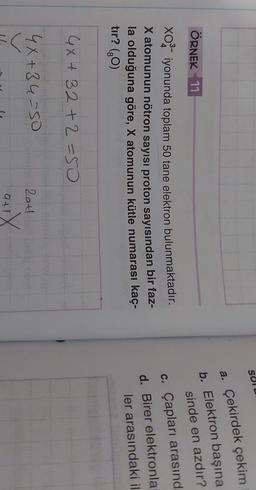 ÖRNEK 11
XO₄³⁻ iyonunda toplam 50 tane elektron bulunmaktadır.
X atomunun nötron sayısı proton sayısından bir faz-
la olduğuna göre, X atomunun kütle numarası kaç-
tır? (₈O)
4x+32+2=50
4x+34=50
2a+1
a+1 X
a. Çekirdek çekim
b. Elektron başına
sinde en azdır?
c. Çapları arasınd
d. Birer elektronla
ler arasındaki il